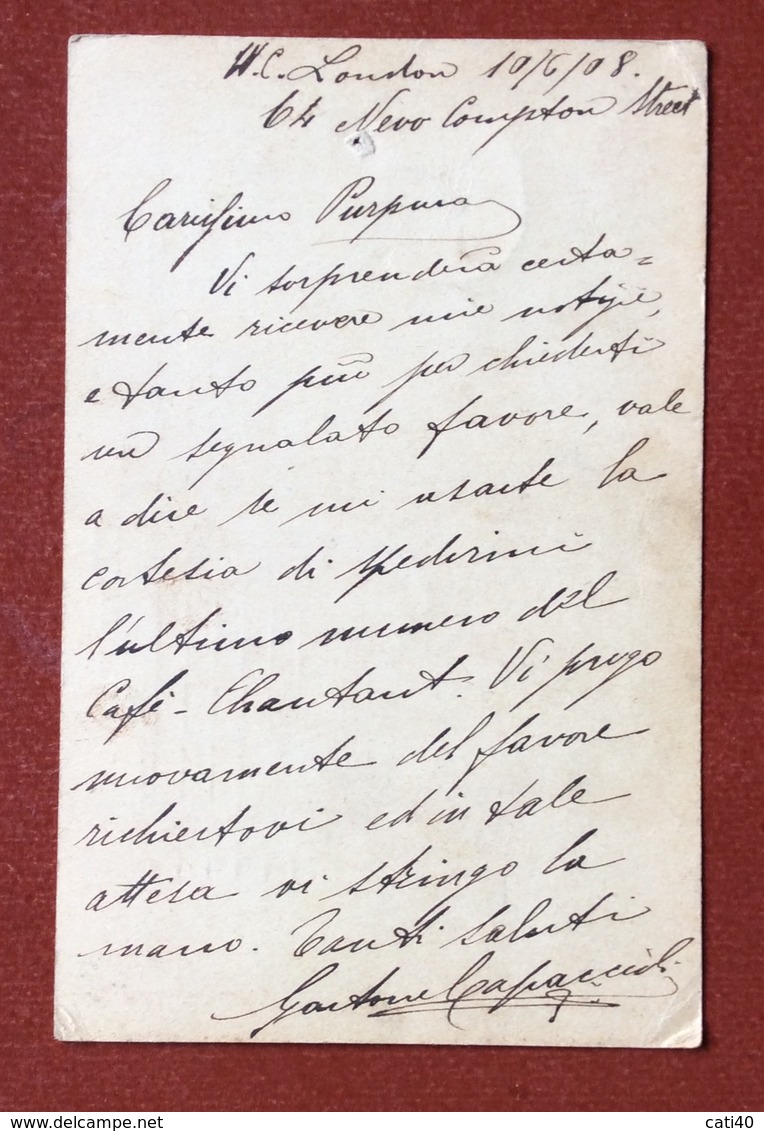 W.C. London 10/6/08.
64 New Compton Street
Carissimo Purpura
Vi sorprenderà certa=
mente ricevere mie notizie,
e tanto più per chiedervi
un segnalato favore, vale
a dire se mi usaste la
cortesia di spedirmi
l'ultimo numero del
Cafè-Chantant. Vi prego
nuovamente del favore
richiestovi ed in tale
attesa vi stringo la
mano. Tanti saluti
Gastone Capaccioli
cati40